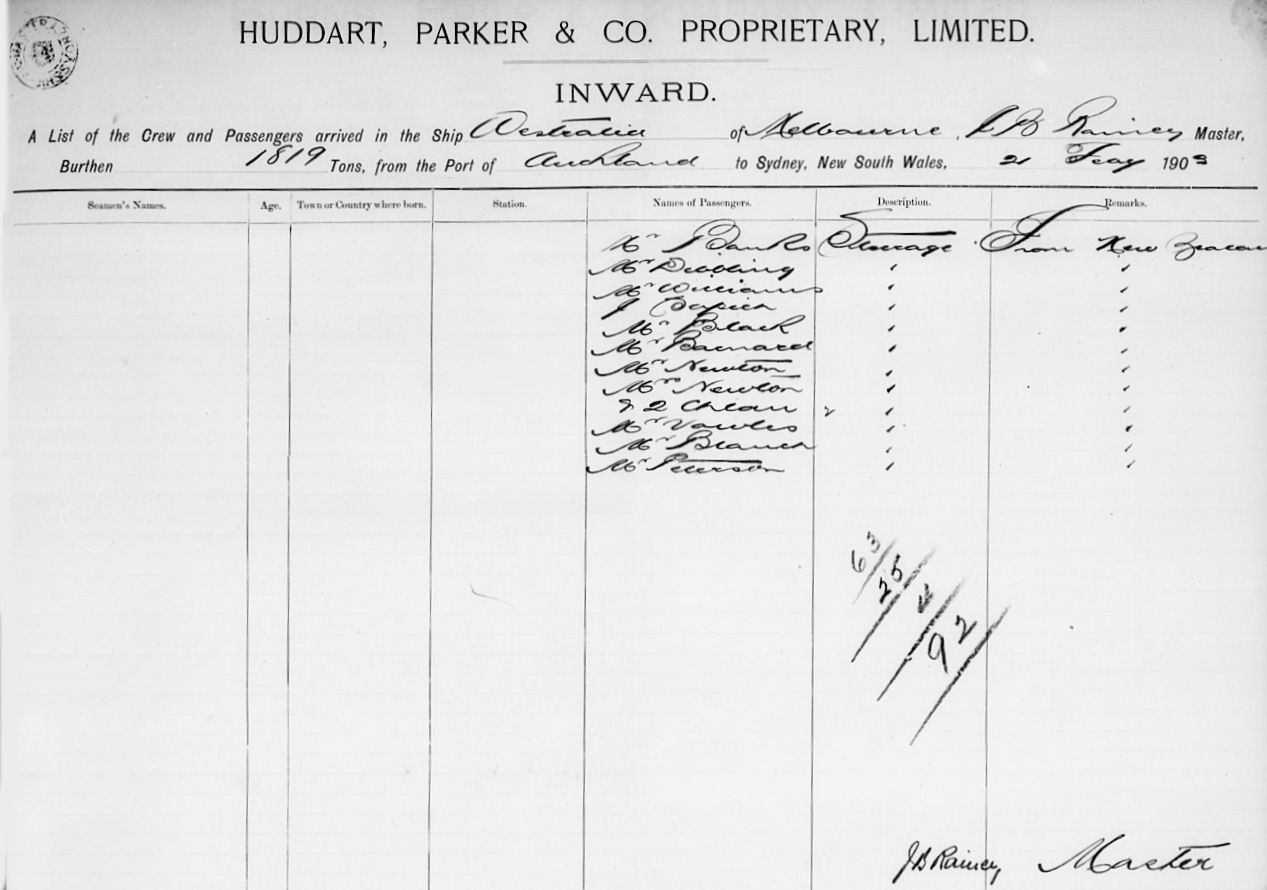 HUDDART, PARKER & CO. PROPRIETARY, LIMITED.
INWARD.
A List of the Crew and Passengers arrived in the Ship Westralia of Melbourne, J B Rainey Master,
Burthen 1819 Tons, from the Port of Auckland to Sydney, New South Wales, 21 Feby 1903
Seamen's Names. Age. Town or Country where born. Station. Names of Passengers. Description. Remarks.
Mr J Banks Steerage From New Zealan
Mr Dibbling " "
Mr Williams " "
J " "
Mr Black " "
Mr Barnard " "
Mr Newton " "
Mrs Newton " "
& 2 " "
Mr Vowles " "
Mr Branch " "
Mr Peterson " "
63
25
4
92
J B Rainey Master